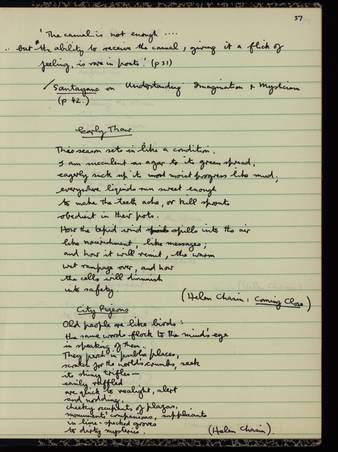 37
'The casual is not enough ....
.. but the ability to receive the casual, giving it a flick of
feeling, is rare in poets.' (p 31)
Santayana on Understanding Imagination & Mysticism
(p 42.)
Early Thaw
This season sets in like a condition.
I am succulent as agar to its green spread,
eagerly sick of it most moist progress like mud;
everywhere liquids run sweet enough
to make the teeth ache, or kill sprouts
obedient in their pots.
How the tepid wind spills into the air
like nourishment, like messages;
and how it will remit, the warm
wet rampage over, and how
the cells will diminish
into safety.
(Helen Chasin: Coming Close.)
City Pigeons
Old people are like birds:
the same words flock to the mind's eye
in speaking of them.
They perch in public places,
scratch for the world's crumbs, seek
its shiny trifles—
easily ruffled
are quick to realight, alert
and nodding,
cheeky recipients of plazas,
monuments' companions, suppliants
in lime-specked groves
to dirty mysteries.
(Helen Chasin)